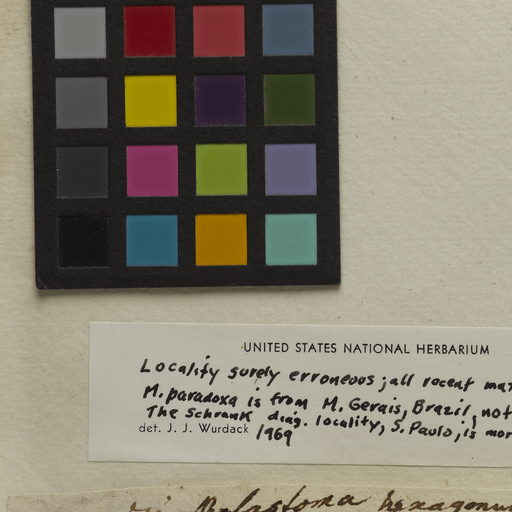 UNITED STATES NATIONAL HERBARIUM
Locality surely erroneous; all recent
M. paradoxa is from M. Gerais, Brazil, not
The Schrank diag. locality, S. Paulo, is
det. J. J. Wurdack 1969
Melastoma